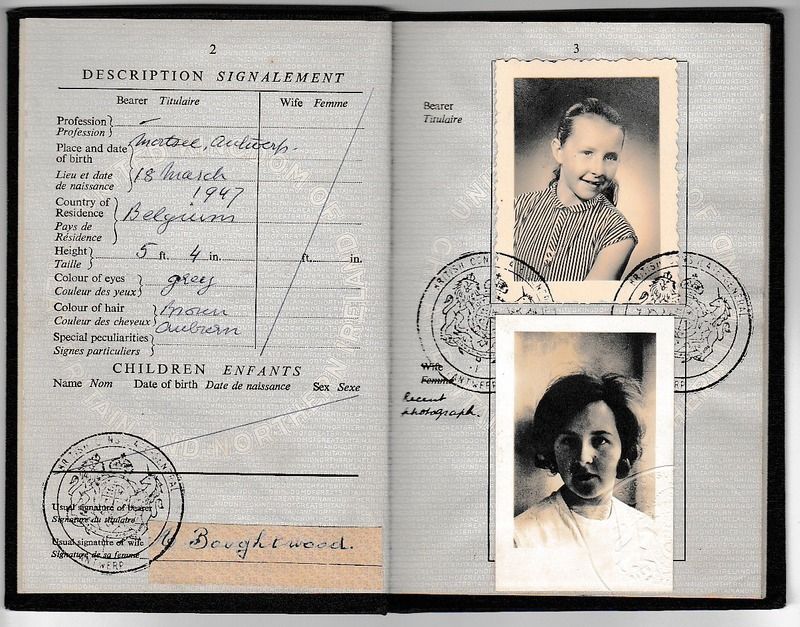 2
DESCRIPTION SIGNALEMENT
Bearer Titulaire
Wife Femme
Profession
Profession
Place and date of birth
Mortsel, Antwerp.
Lieu et date de naissance
18 March 1947
Country of Residence
Pays de Résidence
Belgium
Height
Taille
5 ft. 4 in.
ft. in.
Colour of eyes
Couleur des yeux
grey
Colour of hair
Couleur des cheveux
brown
Auburn
Special peculiarities
Signes particuliers
CHILDREN ENFANTS
Name Nom Date of birth Date de naissance Sex Sexe
Usual signature of bearer
Signature du titulaire
Usual signature of wife
Signature de sa femme
Boughtwood.
BRITISH CONSULATE GENERAL
ANTWERP
3
Bearer
Titulaire
BRITISH CONSULATE GENERAL
ANTWERP
Wife
Femme
Recent
photograph.